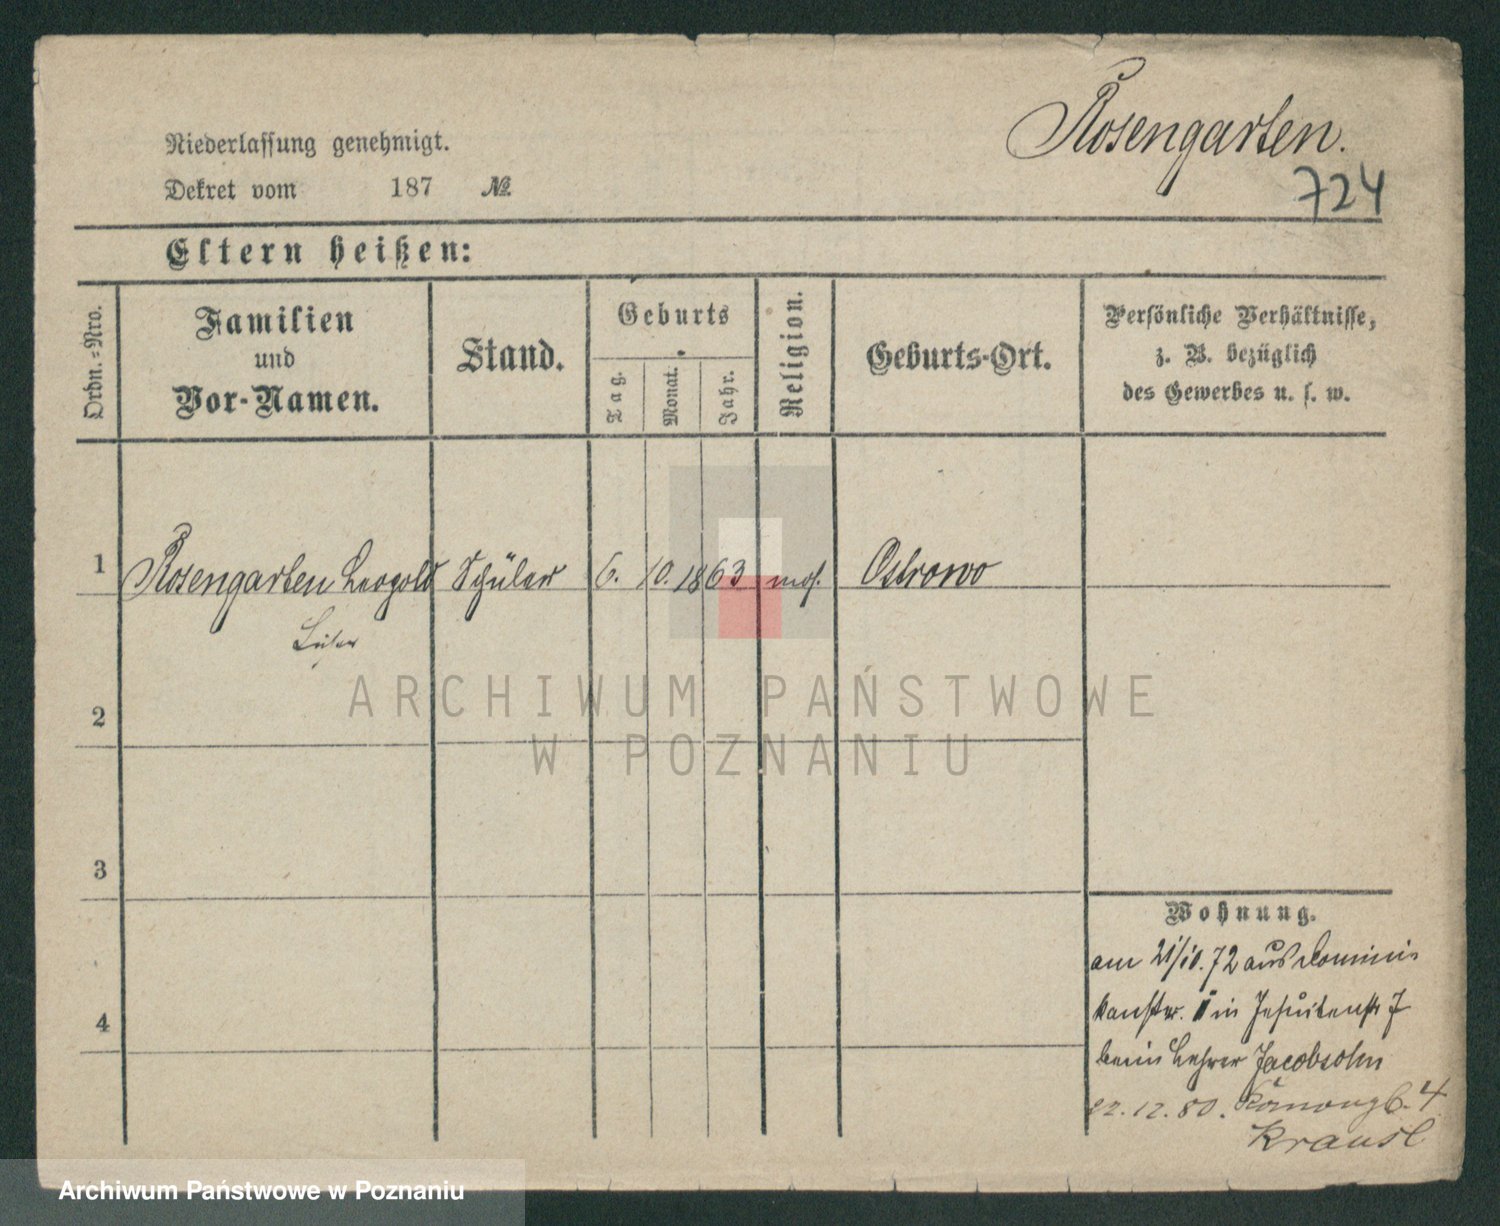 Rosengarten.
724
Niederlassung genehmigt.
Dekret vom 187 №
Eltern heißen:
Ordn.-Nro.
Familien
und
Vor-Namen.
Stand.
Geburts
Tag.
Monat.
Jahr.
Religion.
Geburts-Ort.
Persönliche Verhältnisse,
z. B. bezüglich
des Gewerbes u. s. w.
1 Rosengarten Leopold Schüler 6. 10. 1863 mos. Ostrowo
2
3
4
Wohnung.
am 21/10. 72 aus Domini-
kanstr. in Jesuitenstr 7
beim Lehrer Jacobsohn
22. 12. 80. 4
ARCHIWUM PAŃSTWOWE
W POZNANIU
Archiwum Państwowe w Poznaniu